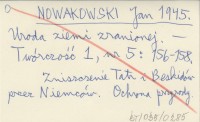 NOWAKOWSKI Jan 1945.
Uroda ziemi zranionej. —
Twórczość 1, nr 5: 156-158,
Zniszczenie Tatr i Beskidów
przez Niemców. Ochrona przyrody.